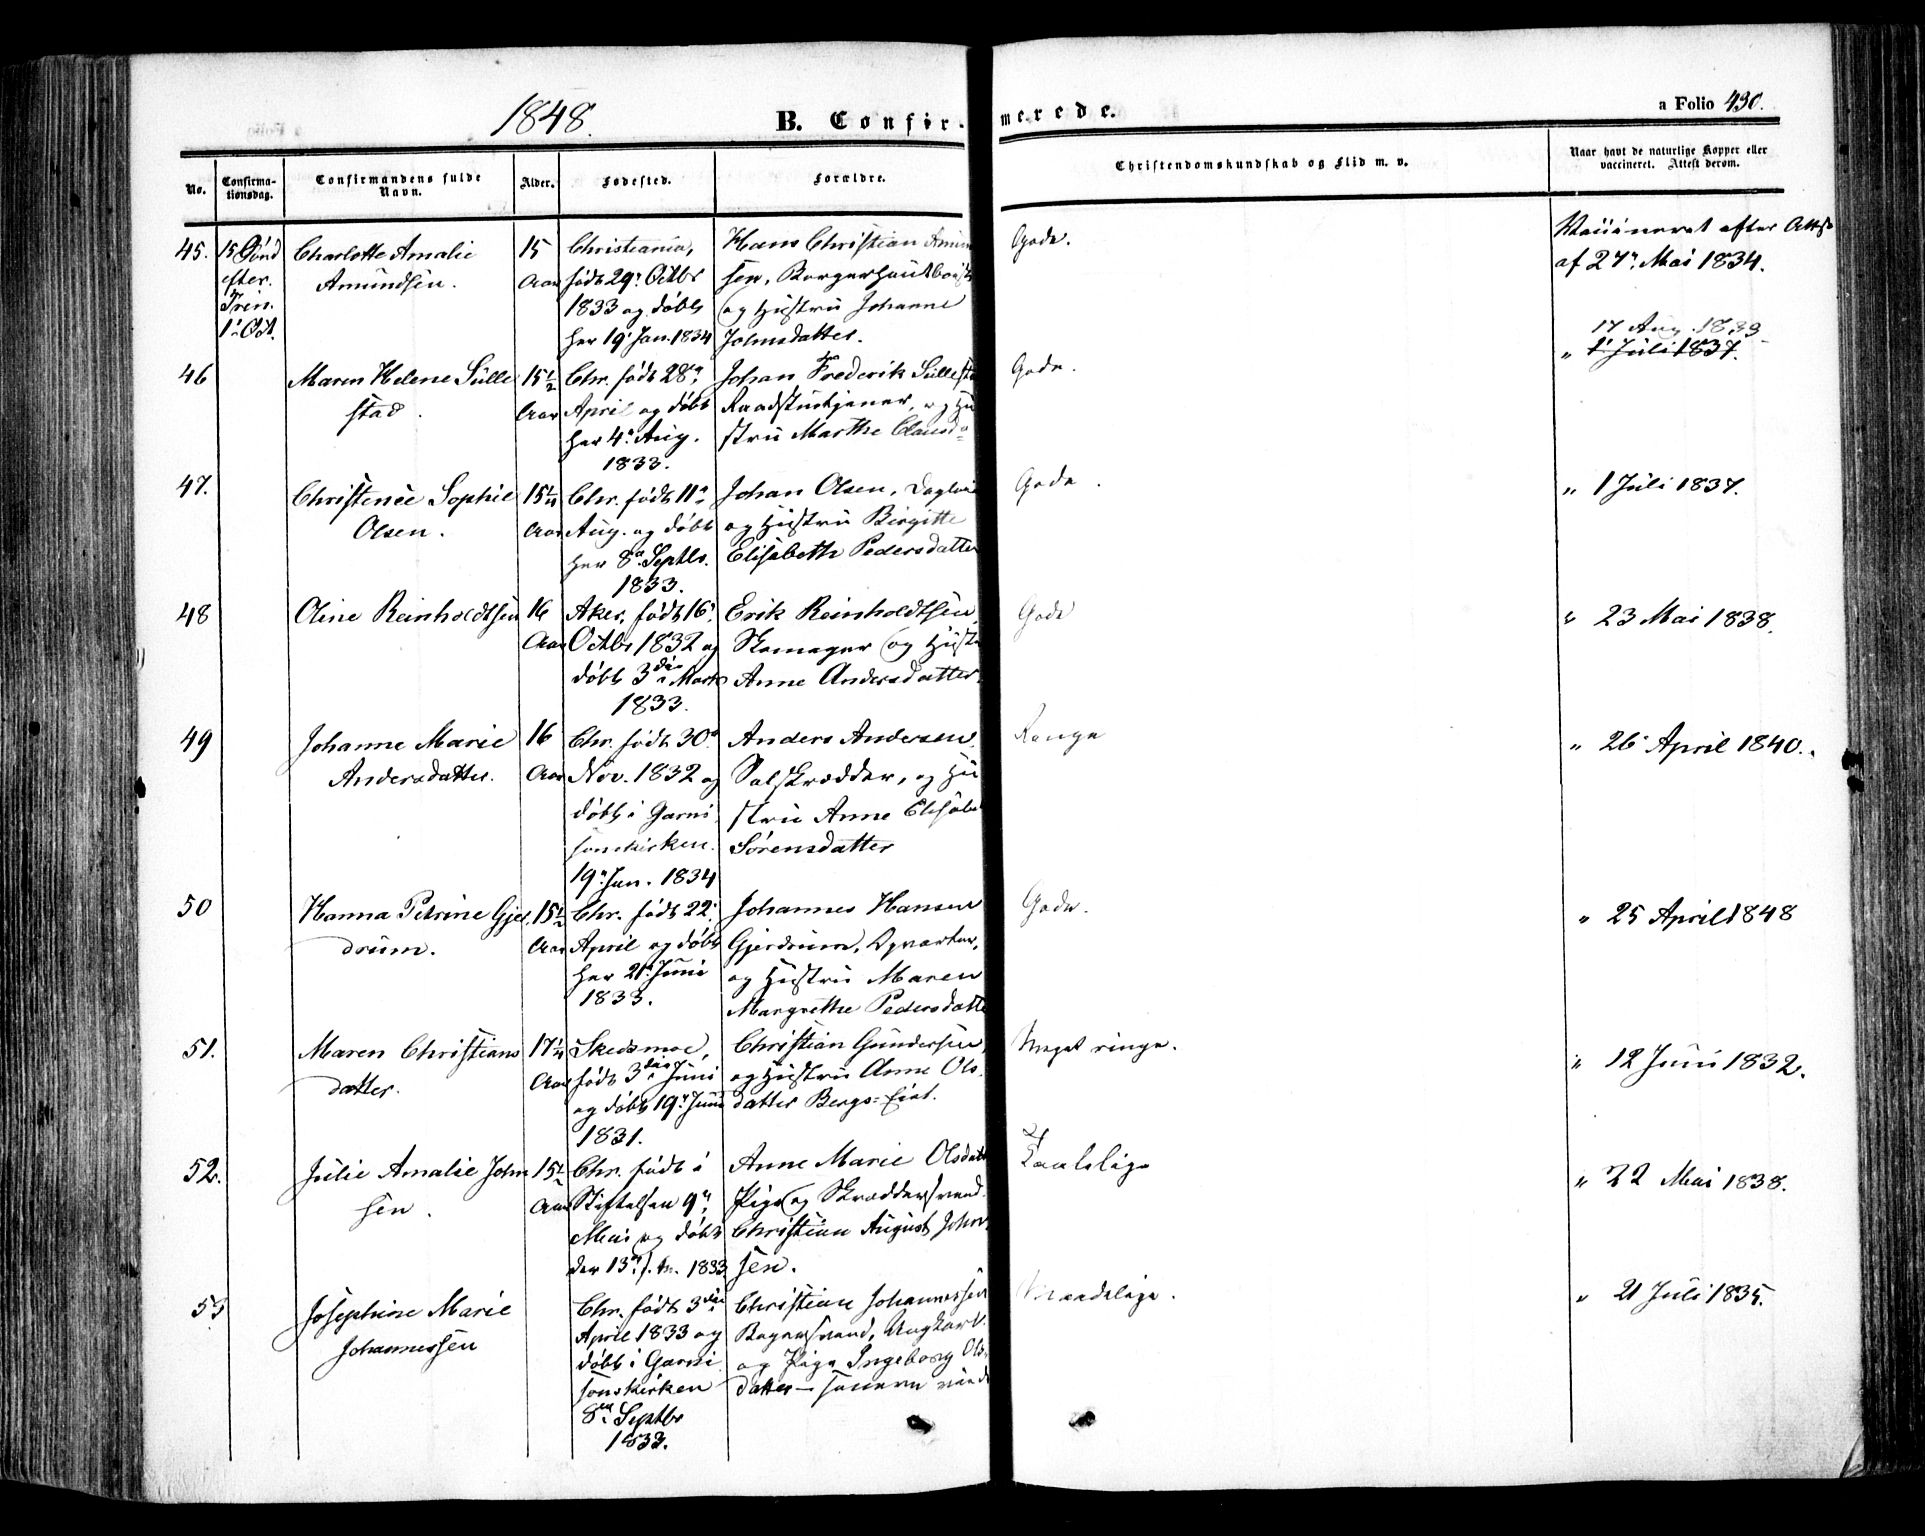 1848.
B. Confir-
merede.
a Folio 430.
No.
Confirma-
tionsdag.
Confirmandens fulde
Navn.
Alder.
Fødested.
Forældre.
Christendomskundskab og Flid m. v.
Naar havt de naturlige Kopper eller
vaccineret. Attest derom.
45.
15 Sønd
efter.
Trin.
1. Oct.
Charlotte Amalie
Amundsen.
15
Aar
Christiania,
født 29. Octbr
1833 og døbt
her 19. Jan. 1834
Hans Christian Amund
sen, Borgerhautboist
og Hustru Johanne
Johnsdatter.
Gode.
Vaccineret efter Attest
af 27. Mai 1834.
46
Maren Helene Sülle
stad.
15 1/2
Aar
Chr. født 28.
April og døbt
her 4. Aug.
1833.
Johan Frederik Süllesta
Raadstuetjener, og Hu
stru Marthe Clausd=
Gode.
17 Aug. 1839
" 1. Juli 1837.
47.
Christence Sophie
Olsen.
Aar
Chr. født 11.
Aug. og døbt
her 8. Septbr.
1833.
Johan Olsen,
og Hustru Birgitte
Elisabeth Pedersdatter
Gode.
" 1 Juli 1837.
48
Oline Reinholdtsen
16
Aar
Aker, født 16.
Octbr 1832 og
døbt 3die Marts
1833.
Erik Reinholdtsen,
Skomager og Hustr
Anne Andersdatter.
Gode
" 23 Mai 1838.
49
Johanne Marie
Andersdatter.
16
Aar
Chr. født 30.
Nov. 1832 og
døbt i Garni
sonskirken.
19. Jan. 1834
Anders Andersen,
og Hu
stru Anne Elisabe
Sørensdatter
Ringe
" 26 April 1840.
50
Hanna Petrine Gjer
drum.
15 1/2
Aar
Chr. født 22.
April og døbt
her 21. Juni
1833.
Johannes Hansen
Gjerdrum, Opvarter,
og Hustru Maren
Margrethe Pedersdatte
Gode.
" 25 April 1848
51.
Maren Christians
datter.
17 1/4
Aar
Skedsmoe,
født 3die Juni
og døbt 19. Juni
1831.
Christian Gundersen,
og Hustru Anne Ols
datter
Meget ringe.
" 12 Juni 1832.
52.
Julie Amalie John
sen.
15 1/2
Aar
Chr. født i
Stiftelsen 9.
Mai og døbt
der 13. s. M. 1833.
Anne Marie Olsdatt
Pige og Skræddersvend
Christian August John
sen.
Taalelige
" 22 Mai 1838.
53
Josephine Marie
Johannessen
Chr. født 3die
April 1833 og
døbt i Garni
sonskirken
8. Septbr
1833.
Christian Johannessen
Bagersvend, Ungkarl
og Pige Ingeborg Ols
datter —
Maadelige.
" 21 Juli 1835.